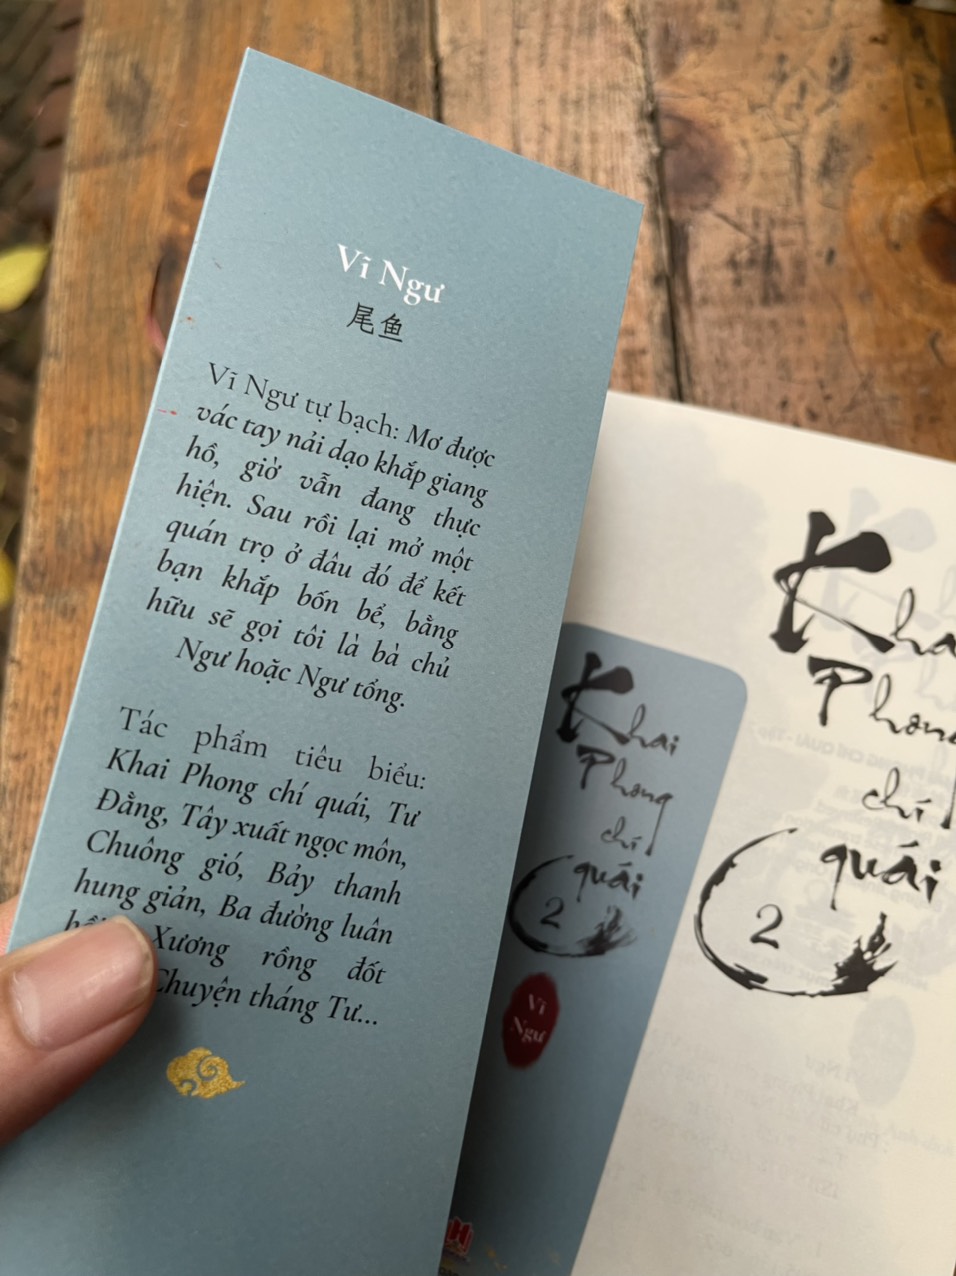 Vĩ Ngư
尾鱼
Vĩ Ngư tự bạch: Mơ được
vác tay nải dạo khắp giang
hồ, giờ vẫn đang thực
hiện. Sau rồi lại mở một
quán trọ ở đâu đó để kết
bạn khắp bốn bể, bằng
hữu sẽ gọi tôi là bà chủ
Ngư hoặc Ngư tổng.
Tác phẩm tiêu biểu:
Khai Phong chí quái, Tư
Đằng, Tây xuất ngọc môn,
Chuông gió, Bảy thanh
hung giản, Ba đường luân
Xương rồng đốt
Chuyện tháng Tư...
Khai
Phong
chí
quái
2
Vĩ
Ngư
Kha
Phong
chí
quái
2